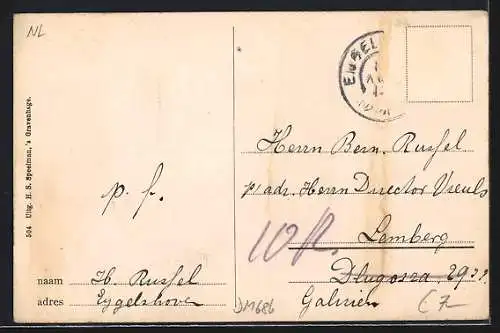 NL
504 Uitg. H. S. Speelman, 's Gravenhage.
p. f.
naam H. Russel
adres Eygelshoven
ENGEL
Herrn Bern. Russel.
p/adr. Herrn Director
Lemberg
Dlugosza, 29
Galizien
DM686